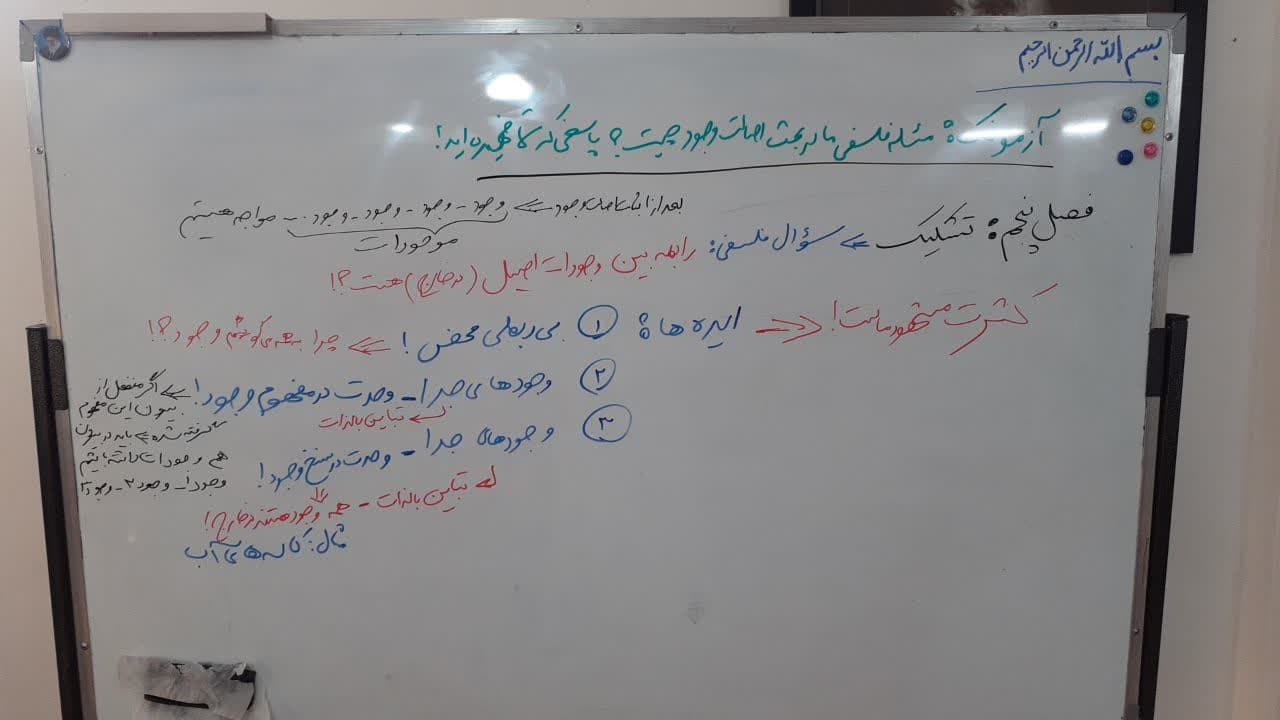 بسم الله الرحمن الرحیم
آزمونک: مسئله فلسفی ما در بحث اصالت وجود چیست؟ پاسخی که شما فهمیده اید!
بعد از اثبات اصالت وجود ⇐ وجود - وجود - وجود - وجود ... مواجه هستیم
موجودات
فصل پنجم: تشکیک ⇐ سؤال فلسفی: رابطه بین وجودات اصیل (در خارج) هست؟!
کثرت مشهود ماست! ⇒ ایده ها: ① بی ربطی محض! ⇐ چرا به همه می گوئیم وجود؟!
② وجودهای جدا - وحدت در مفهوم وجود! ⇐ اگر منفعل از
بیرون این مفهوم
گرفته شده ⇐ باید در بیرون
هم وجودات داشته باشیم
وجود ۱ - وجود ۲ - وجود ۳
تباین بالذات
③ وجودهای جدا - وحدت در سنخ وجود!
تباین بالذات - همه وجود هستند در خارج!
مثال: کاسه های آب